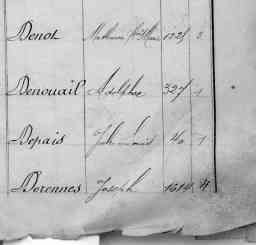 Denot Mathurin 1225 2
Denouail Adolphe 327 1
Depais Jules Louis 40 1
Derennes Joseph 1614 4